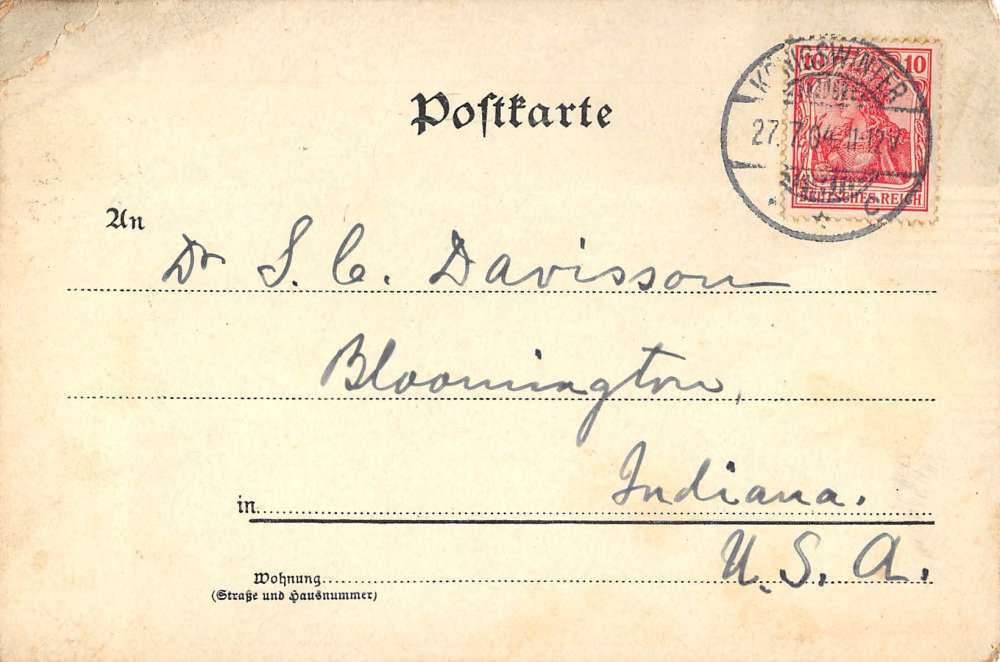 10 10
KÖNIGSWINTER
27.7.04. 11-12V
* * c
DEUTSCHES REICH
Postkarte
An
Dr S. C. Davisson
Bloomington,
Indiana.
in
U. S. A.
Wohnung
(Straße und Hausnummer)